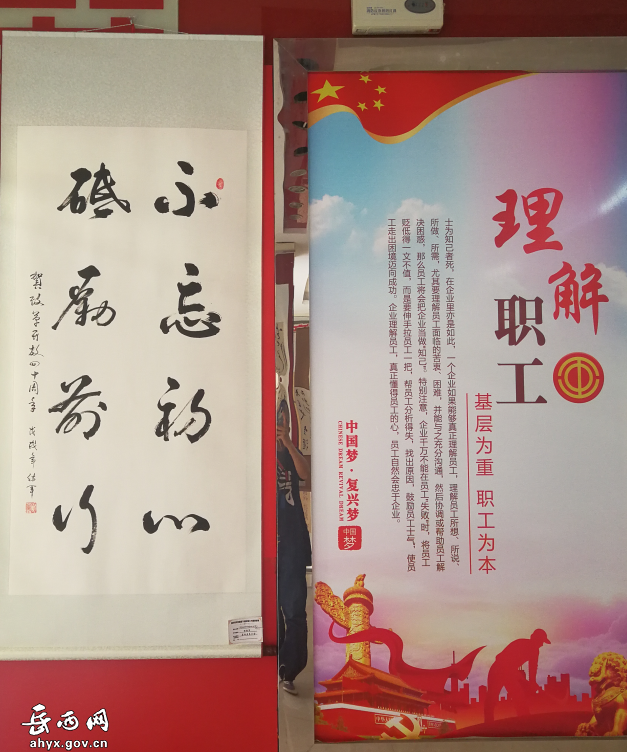 不忘初心
砥励前行
贺改革开放四十周年 戊戌年
理解
职工
基层为重 职工为本
士为知己者死，在企业里亦是如此，一个企业如果能够真正理解员工，理解员工所想、所说、
所做、所需，尤其要理解员工面临的苦衷、困难，并能与之充分沟通，然后协调或帮助员工解
决困惑，那么员工将会把企业当做“知己”。特别注意，企业千万不能在员工“失败”时，将员工
贬低得一文不值，而是要伸手拉员工一把，帮员工分析得失，找出原因，鼓励员工士气，使员
工走出困境迈向成功。企业理解员工，真正懂得员工的心，员工自然会忠于企业。
中国梦·复兴梦
CHINESE DREAM REVIVAL DREAM
中国
梦
岳西网
ahyx.gov.cn